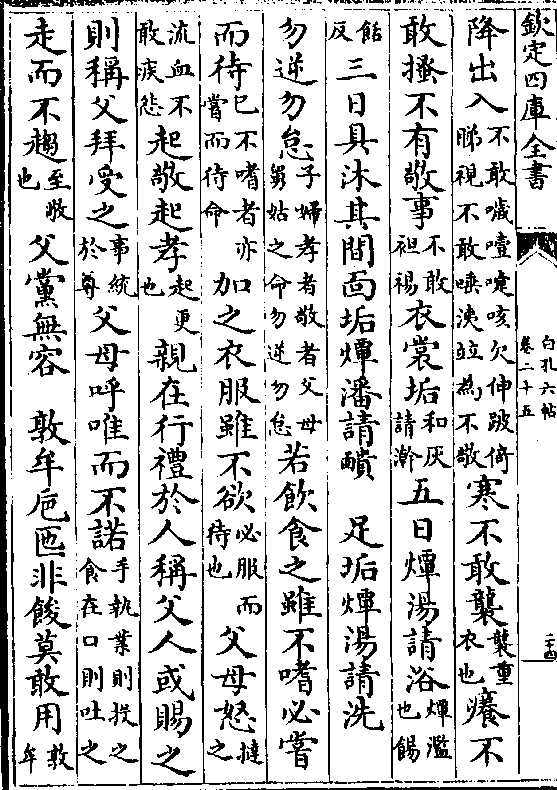 欽定四庫全書
白孔六帖
卷二十五
二十四
降出入不敢噦噫嚏咳欠伸跛倚睇視不敢唾洟竝為不敬寒不敢襲襲重衣也癢不
敢搔不有敬事不敢袒裼衣裳垢和灰請澣五日燂湯請浴燂濫也餳
餂反三日具沐其間面垢燂潘請靧　足垢燂湯請洗
勿逆勿怠子婦孝者敬者父母舅姑之命勿逆勿怠若飲食之雖不嗜必嘗
而待已不嗜者亦嘗而待命加之衣服雖不欲必服而待也父母怒撻之
流血不敢疾怨起敬起孝起更也親在行禮於人稱父人或賜之
則稱父拜受之事統於尊父母呼唯而不諾手執業則投之食在口則吐之
走而不趨至敬也父黨無容　敦牟巵匜非餕莫敢用敦牟